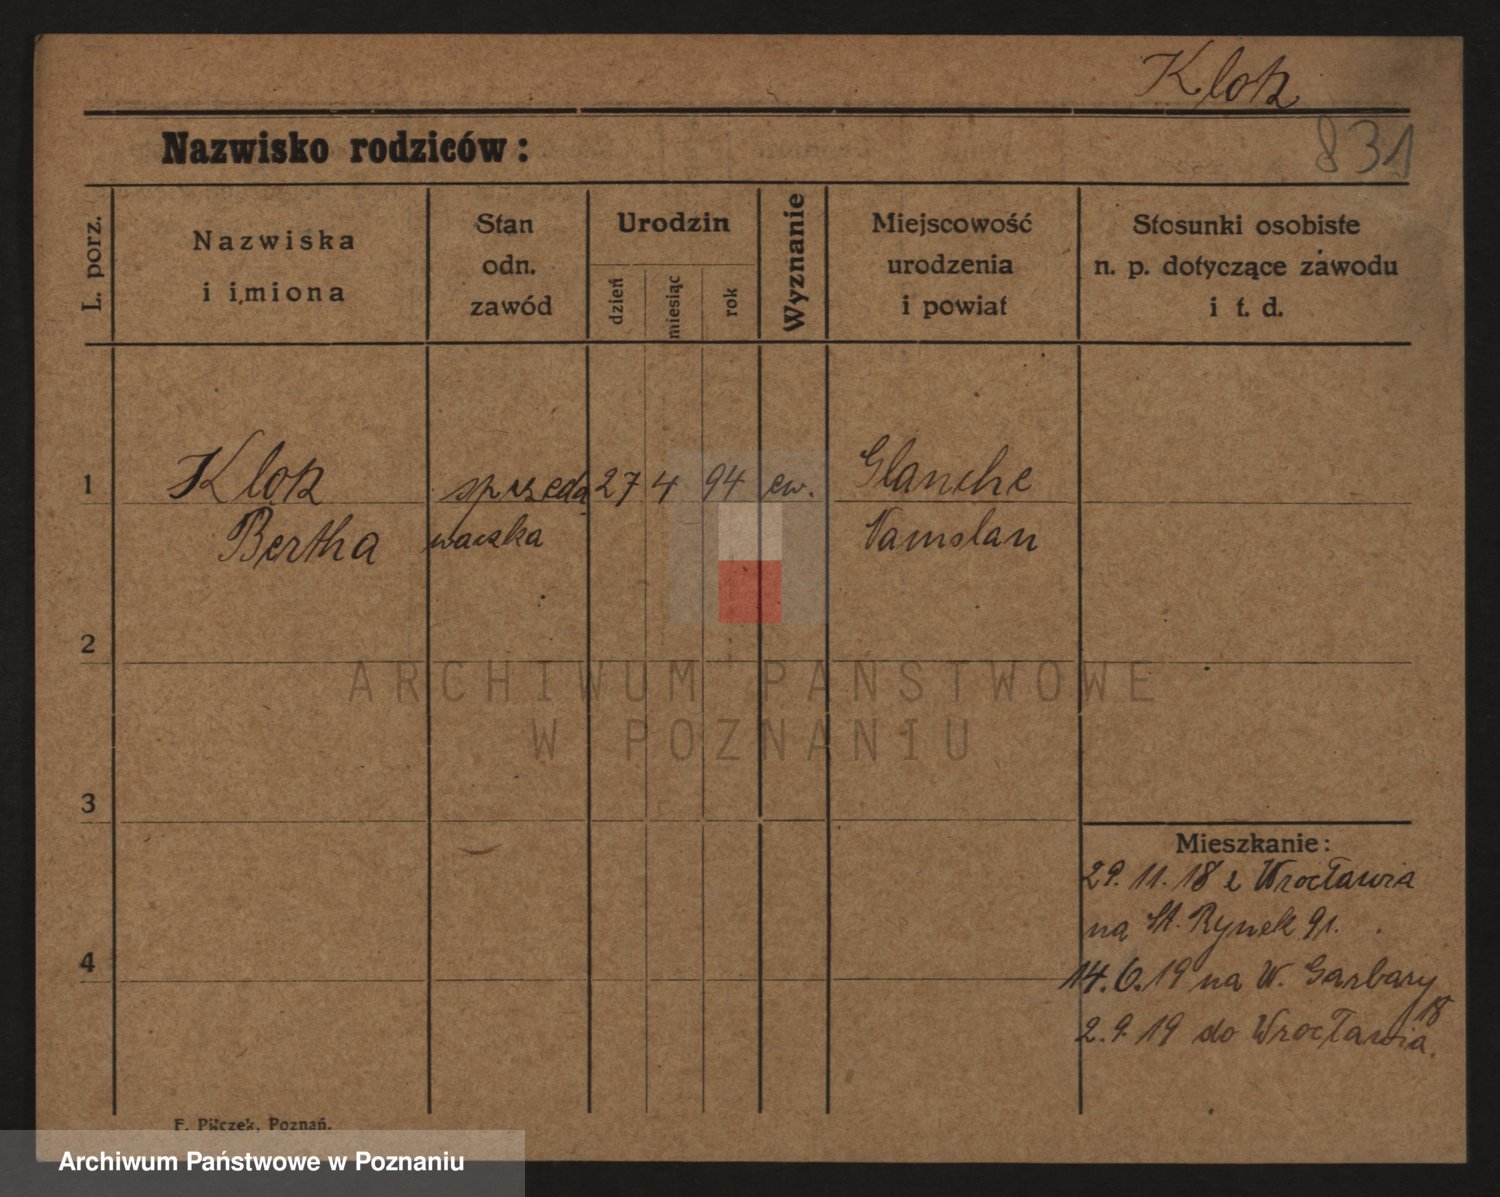 Klotz
831
Nazwisko rodziców:
L. porz.
Nazwiska
i imiona
Stan
odn.
zawód
Urodzin
dzień
miesiąc
rok
Wyznanie
Miejscowość
urodzenia
i powiat
Stosunki osobiste
n. p. dotyczące zawodu
i t. d.
1 Klotz sprzeda 27 4 94 ew. Glausche
Bertha waczka Namslau
2
ARCHIWUM PAŃSTWOWE
W POZNANIU
3
Mieszkanie:
29. 11. 18 z Wrocławia
na St. Rynek 91.
4
14. 6. 19 na W. Garbary
18
2. 9. 19 do Wrocławia.
F. Pilczek, Poznań.
Archiwum Państwowe w Poznaniu